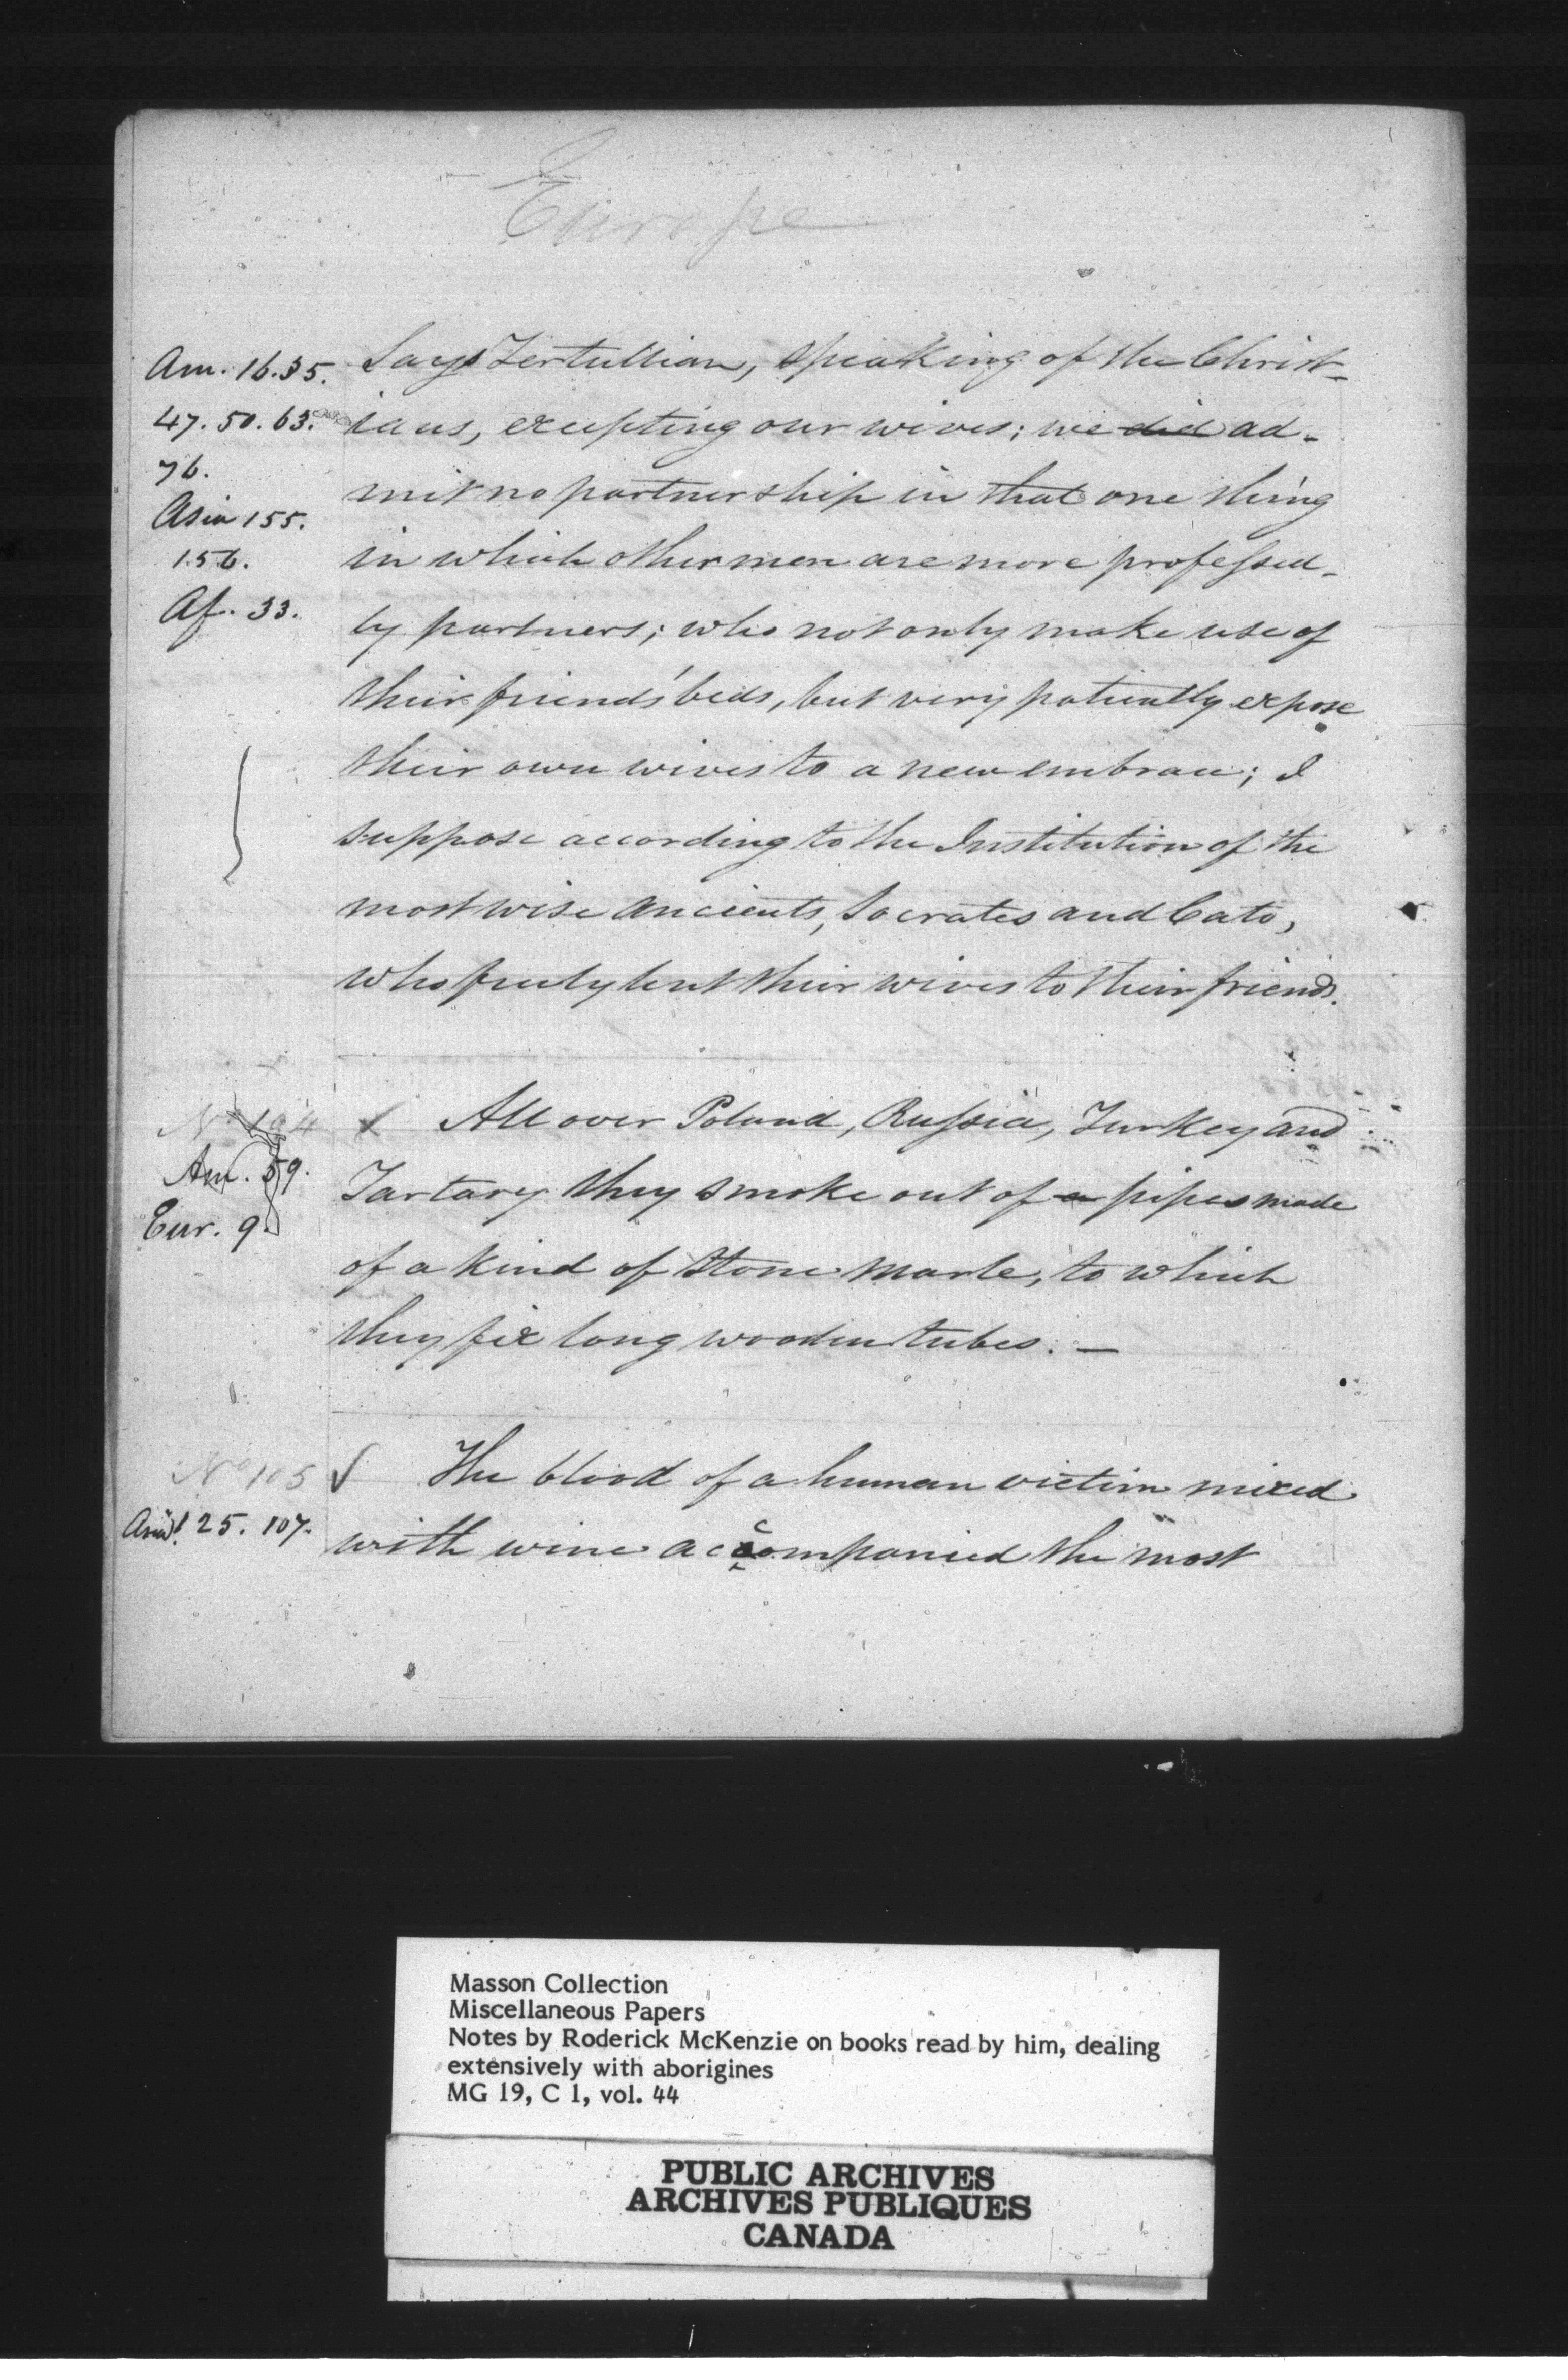 Europe
Am. 16.35.
47. 50. 63.
76.
Asia 155.
156.
Af. 33.
Says Tertullian, speaking of the Christ-
ians, excepting our wives; we did ad-
mit no partnership in that one thing
in which other men are more professed-
ly partners; who not only make use of
their friends' beds, but very patiently expose
their own wives to a new embrace; I
suppose according to the Institution of the
most wise ancients, Socrates and Cato,
who freely lent their wives to their friends.
No 104
Am. 59.
Eur. 9.
All over Poland, Russia, Turkey and
Tartary they smoke out of a pipes made
of a kind of stone marle, to which
they fix long wooden tubes. —
No 105
Asia 25. 107.
The blood of a human victim mixed
with wine accompanied the most
Masson Collection
Miscellaneous Papers
Notes by Roderick McKenzie on books read by him, dealing
extensively with aborigines
MG 19, C 1, vol. 44
PUBLIC ARCHIVES
ARCHIVES PUBLIQUES
CANADA